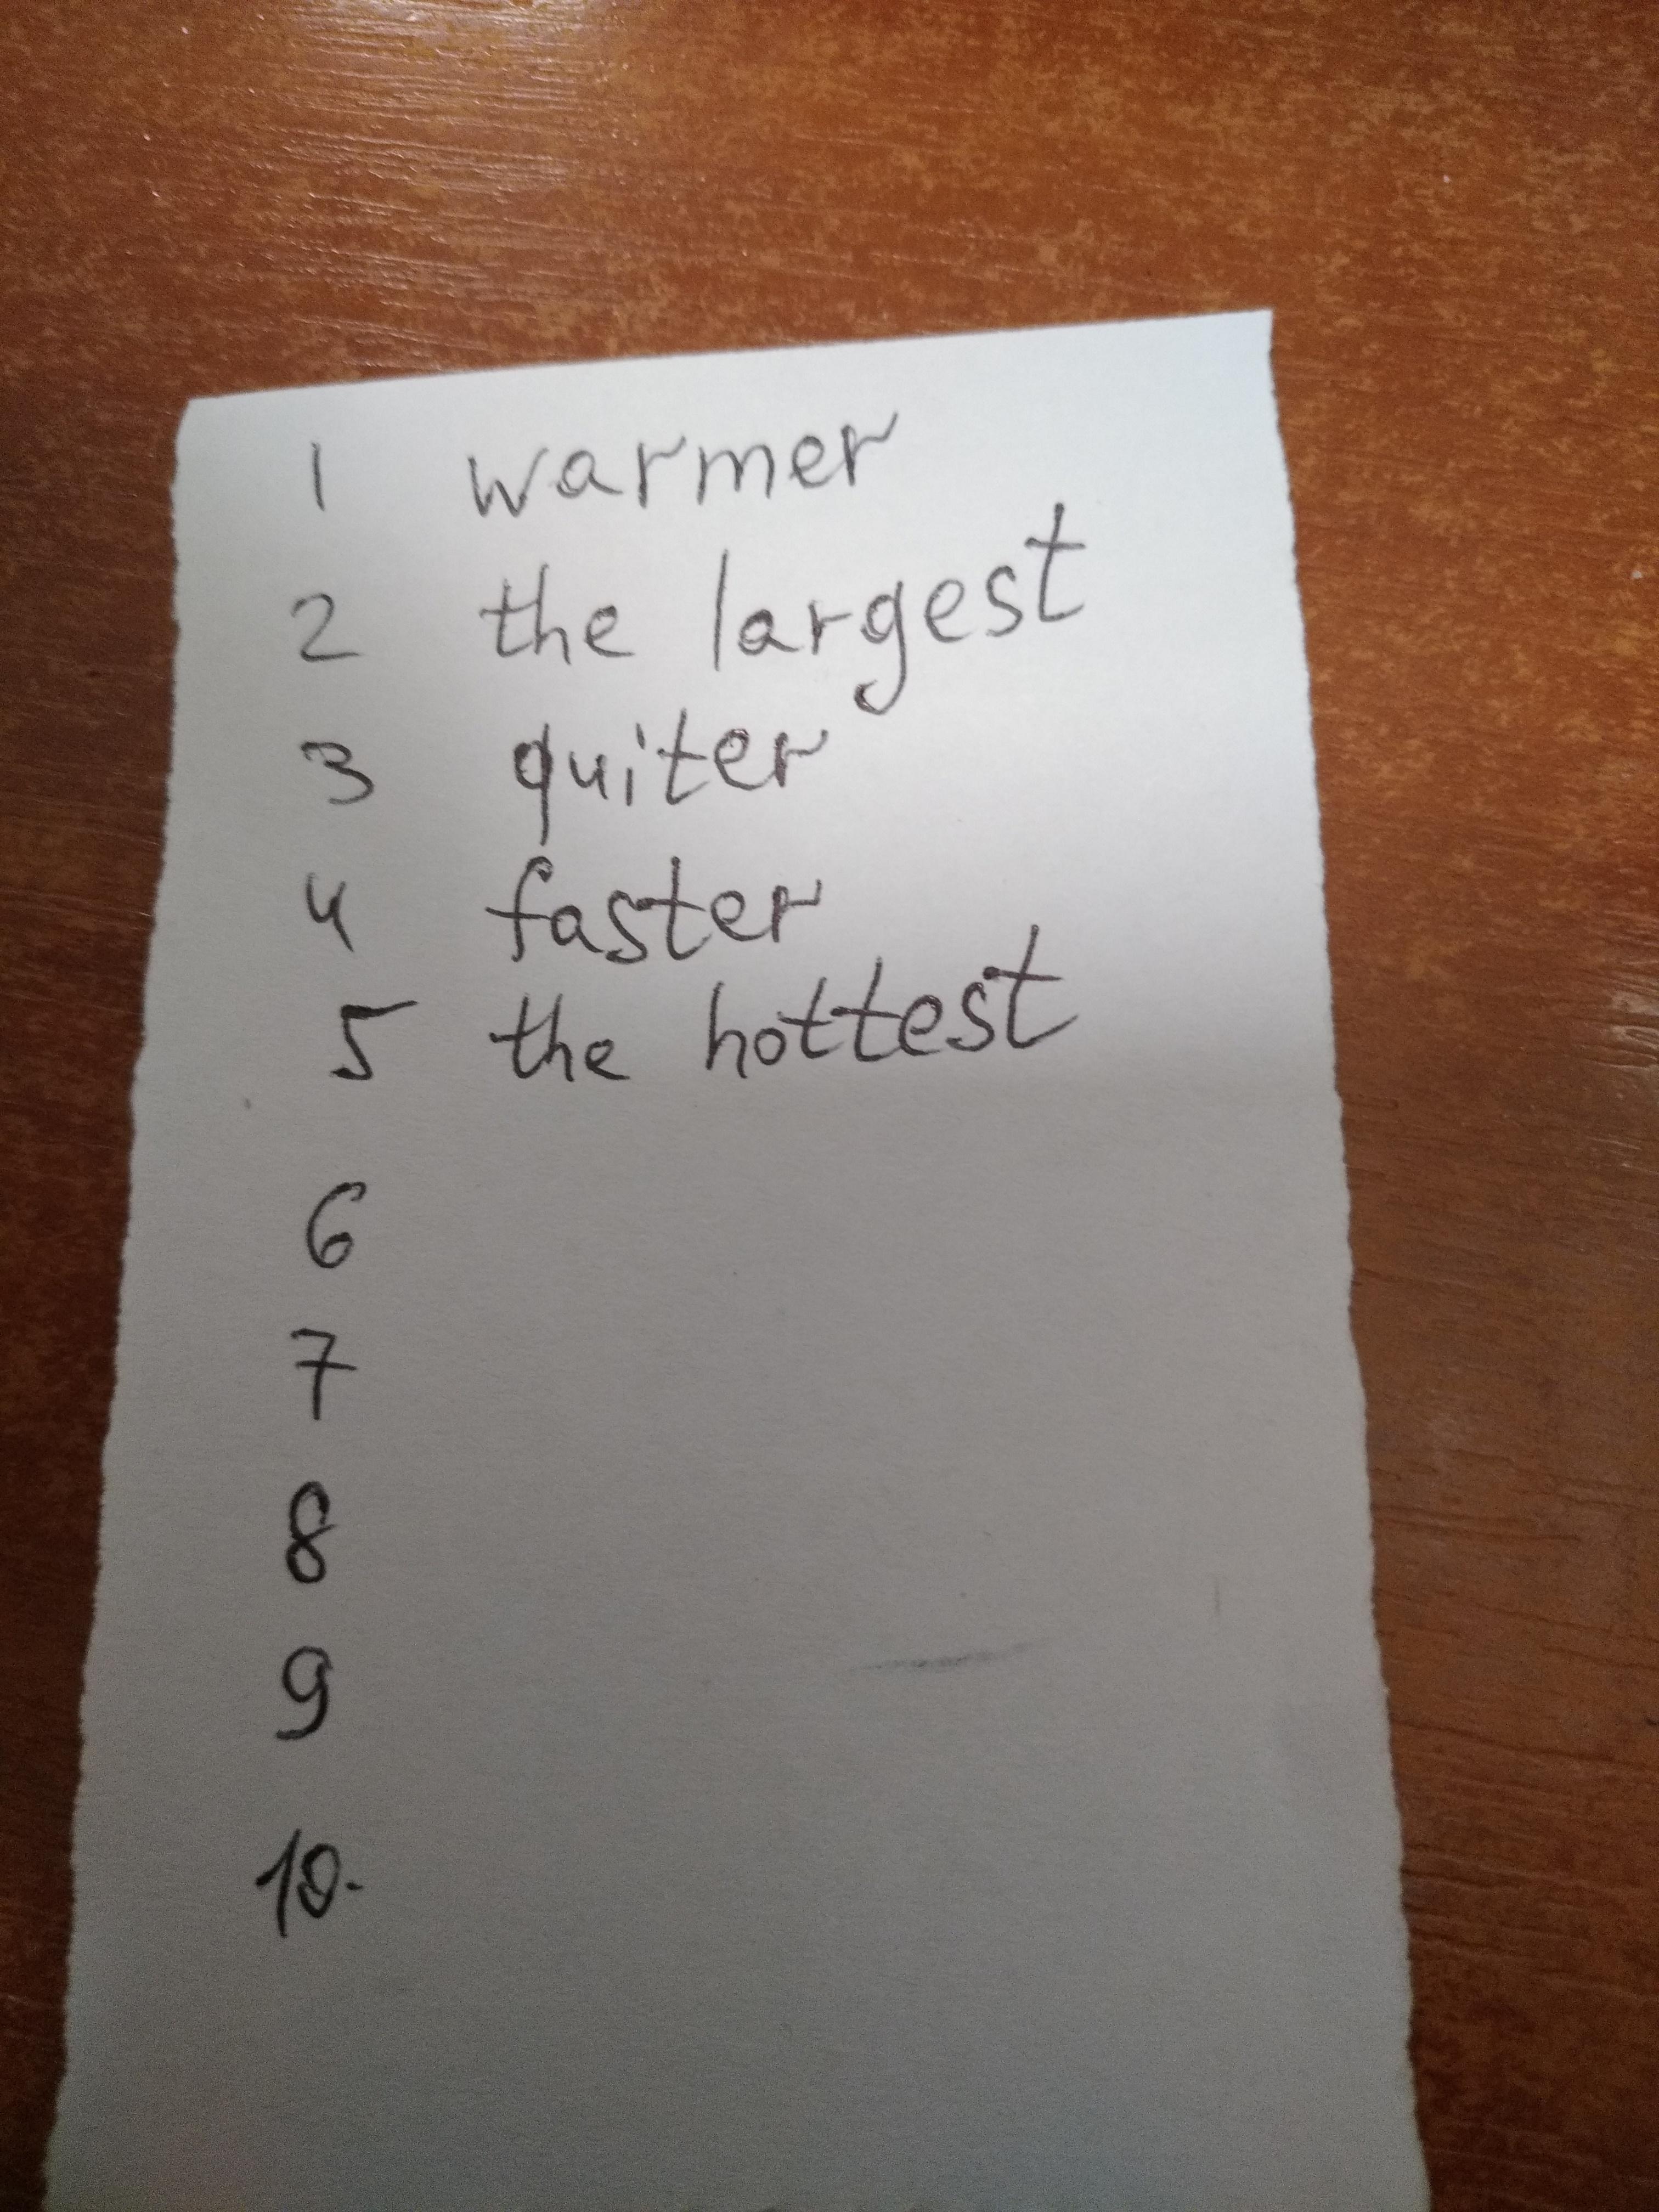 1 warmer
2 the largest
3 quiter
4 faster
5 the hottest
6
7
8
9
10.